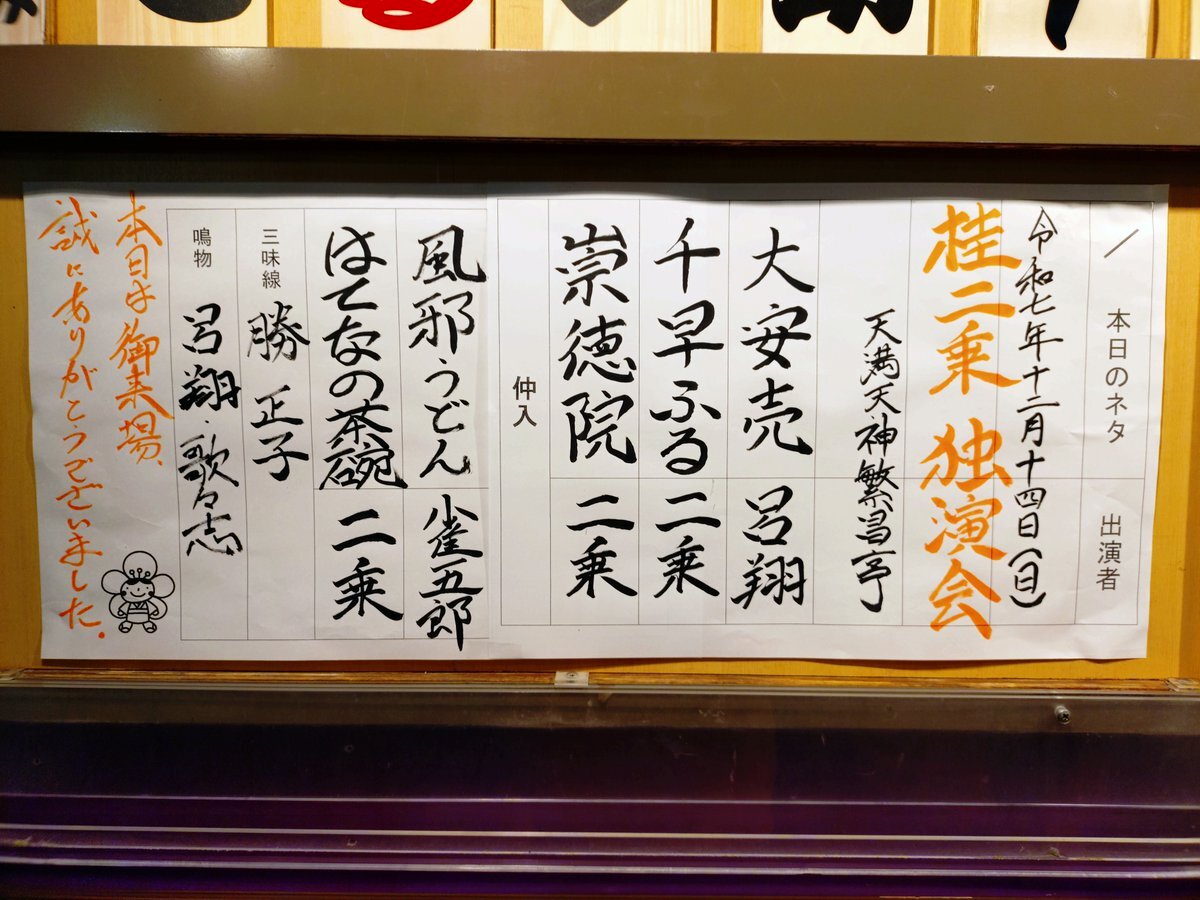 ／
本日のネタ
出演者
令和七年十二月十四日(日)
桂二乗 独演会
天満天神繁昌亭
大安売 呂翔
千早ふる 二乗
崇徳院 二乗
仲入
風邪うどん 雀五郎
はてなの茶碗 二乗
三味線 勝 正子
鳴物 呂翔・歌々志
本日は御来場、
誠にありがとうございました.